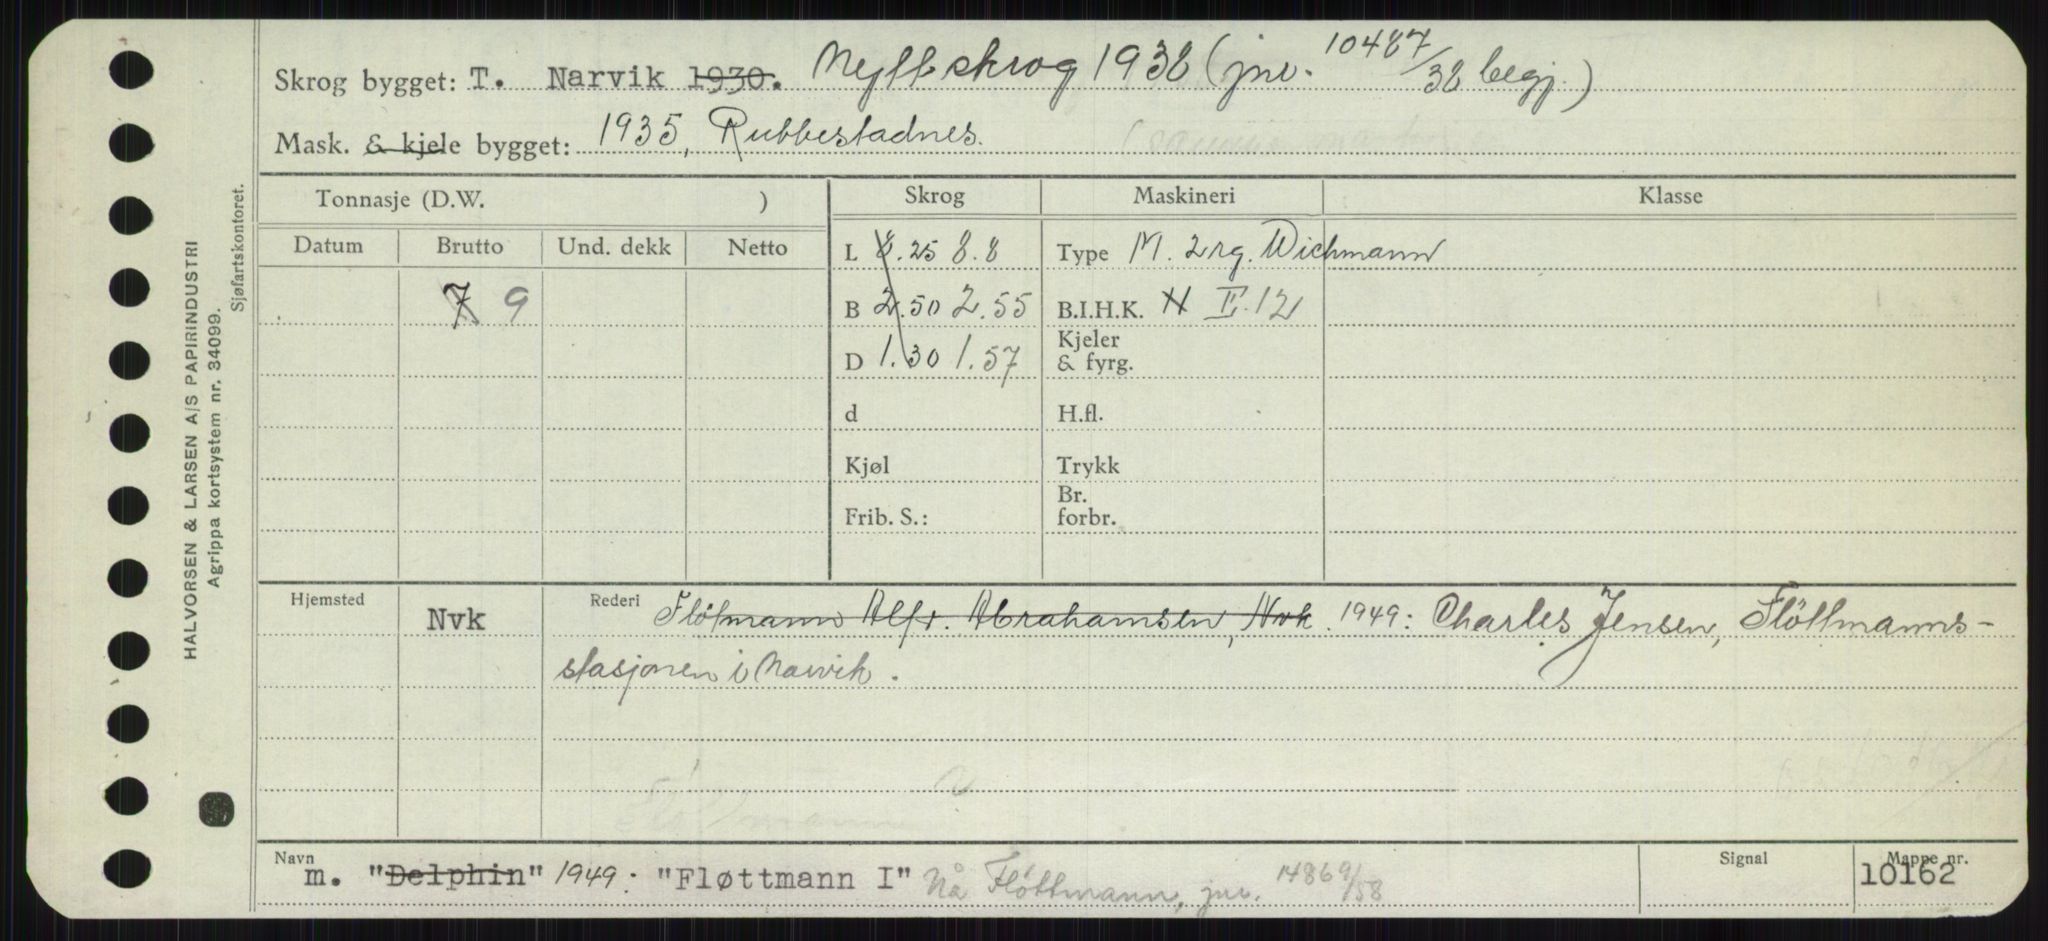 Skrog bygget: T. Narvik 1930. Nytt skrog 1938 (jnr. 10487/38 begj.)
Mask. & kjele bygget: 1935, Rubbestadnes.
Tonnasje (D.W. ) Skrog Maskineri Klasse
Datum Brutto Und. dekk Netto L 8.25 8.8 Type M. 2 rg. Wichmann
7 9 B 2.50 2.55 B.I.H.K. N II. 12
D 1.30 1.57 Kjeler & fyrg.
d H.fl.
Kjøl Trykk
Frib. S.: Br. forbr.
Hjemsted Nvk Rederi Fløtmann Alfr. Abrahamsen, Nvk. 1949: Charles Jensen, Flöttmanns-
stasjonen i Narvik.
Navn m. "Delphin" 1949: "Fløttmann I" Nå Flöttmann, jnr. 14869/58 Signal Mappe nr. 10162
HALVORSEN & LARSEN A/S PAPIRINDUSTRI
Agrippa kortsystem nr. 34099.
Sjøfartskontoret.